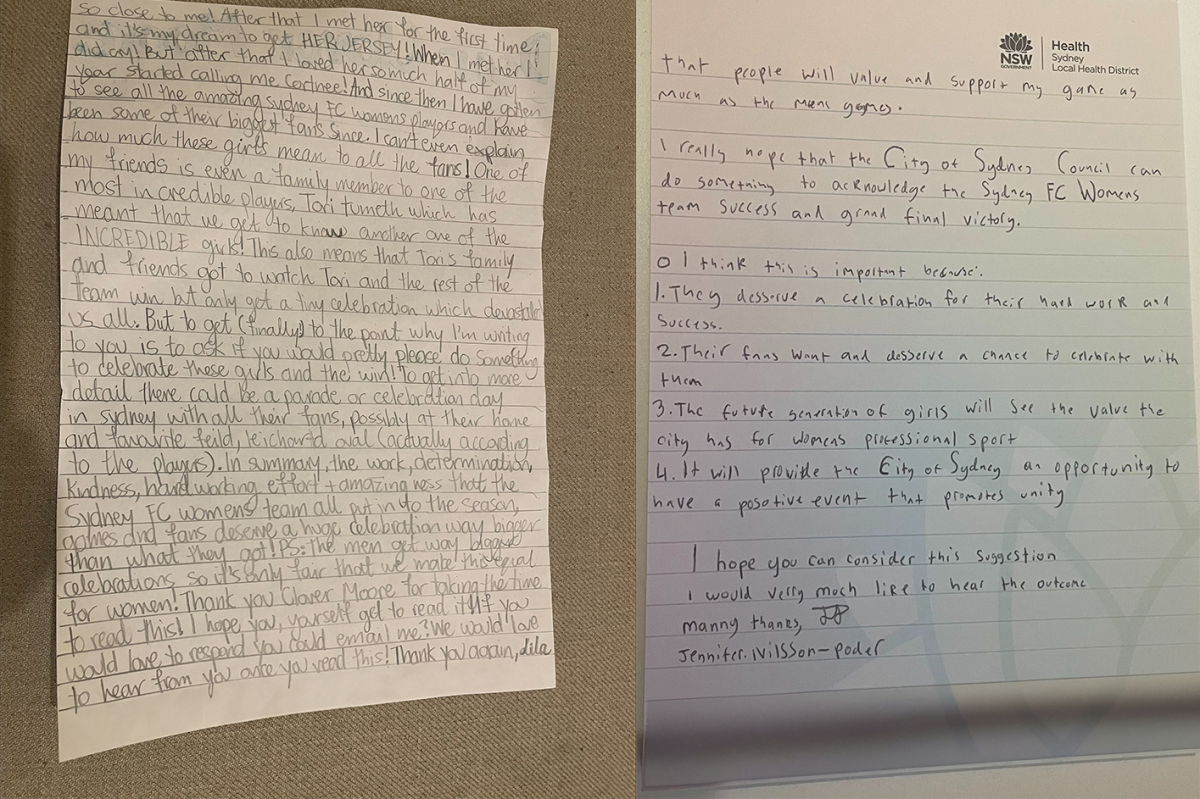 so close to me! After that I met her for the first time,
and it's my dream to get HER JERSEY! When I met her I
did cry! But after that I loved her so much half of my
year started calling me Cortnee! And since then I have gotten
to see all the amazing sydney FC womens players and have
been some of their biggest fans since. I can't even explain
how much these girls mean to all the fans! One of
my friends is even a family member to one of the
most in credible players, Tori tumeth which has
meant that we get to know another one of the
INCREDIBLE girls! This also means that Tori's family
and friends got to watch Tori and the rest of the
team win but only got a tiny celebration which devastated
us all. But to get (finally) to the point why I'm writing
to you is to ask if you would pretty please do something
to celebrate these girls and the win! To get into more
detail there could be a parade or celebration day
in sydney with all their fans, possibly at their home
and favourite feild, leichard oval (actually according
to the players). In summary, the work, determination,
kindness, hard working effort + amazing ness that the
Sydney FC womens team all put in to the season,
games and fans deserve a huge celebration way bigger
than what they got! PS: The men get way bigger
celebrations so it's only fair that we make this equal
for women! Thank you Clover Moore for taking the time
to read this! I hope, you, yourself get to read it! If you
would love to respond you could email me? We would love
to hear from you once you read this! Thank you again, Lila
NSW
GOVERNMENT
Health
Sydney
Local Health District
that people will value and support my game as
much as the mens games.
I really hope that the City of Sydney Council can
do something to acknowledge the Sydney FC Womens
team success and grand final victory.
I think this is important because:
1. They desserve a celebration for their hard work and
success.
2. Their fans want and desserve a chance to celebrate with
them
3. The future generation of girls will see the value the
city has for womens professional sport
4. It will provide the City of Sydney an opportunity to
have a posotive event that promotes unity
I hope you can consider this suggestion
I would verry much like to hear the outcome
manny thanks, JP
Jennifer. Nilsson-Poder